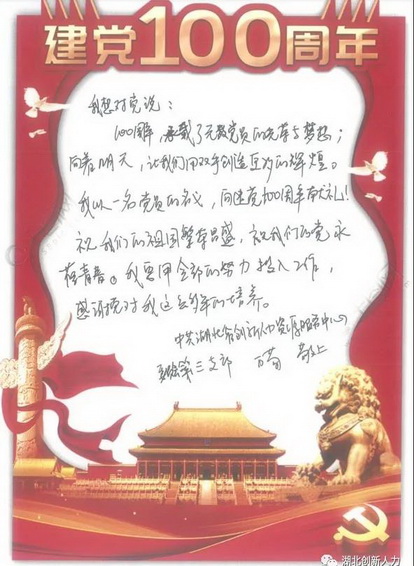 建党100周年
我想对党说：
100周年，承载了无数党员的光荣与梦想；
向着明天，让我们用双手创造更多的辉煌。
我以一名党员的名义，向建党100周年献礼！
祝我们的祖国繁荣昌盛，祝我们的党永
葆青春。我要用全部的努力投入工作，
感谢党对我这些年的培养。
中共湖北省创新人力资源服务中心
第三支部 敬上
湖北创新人力